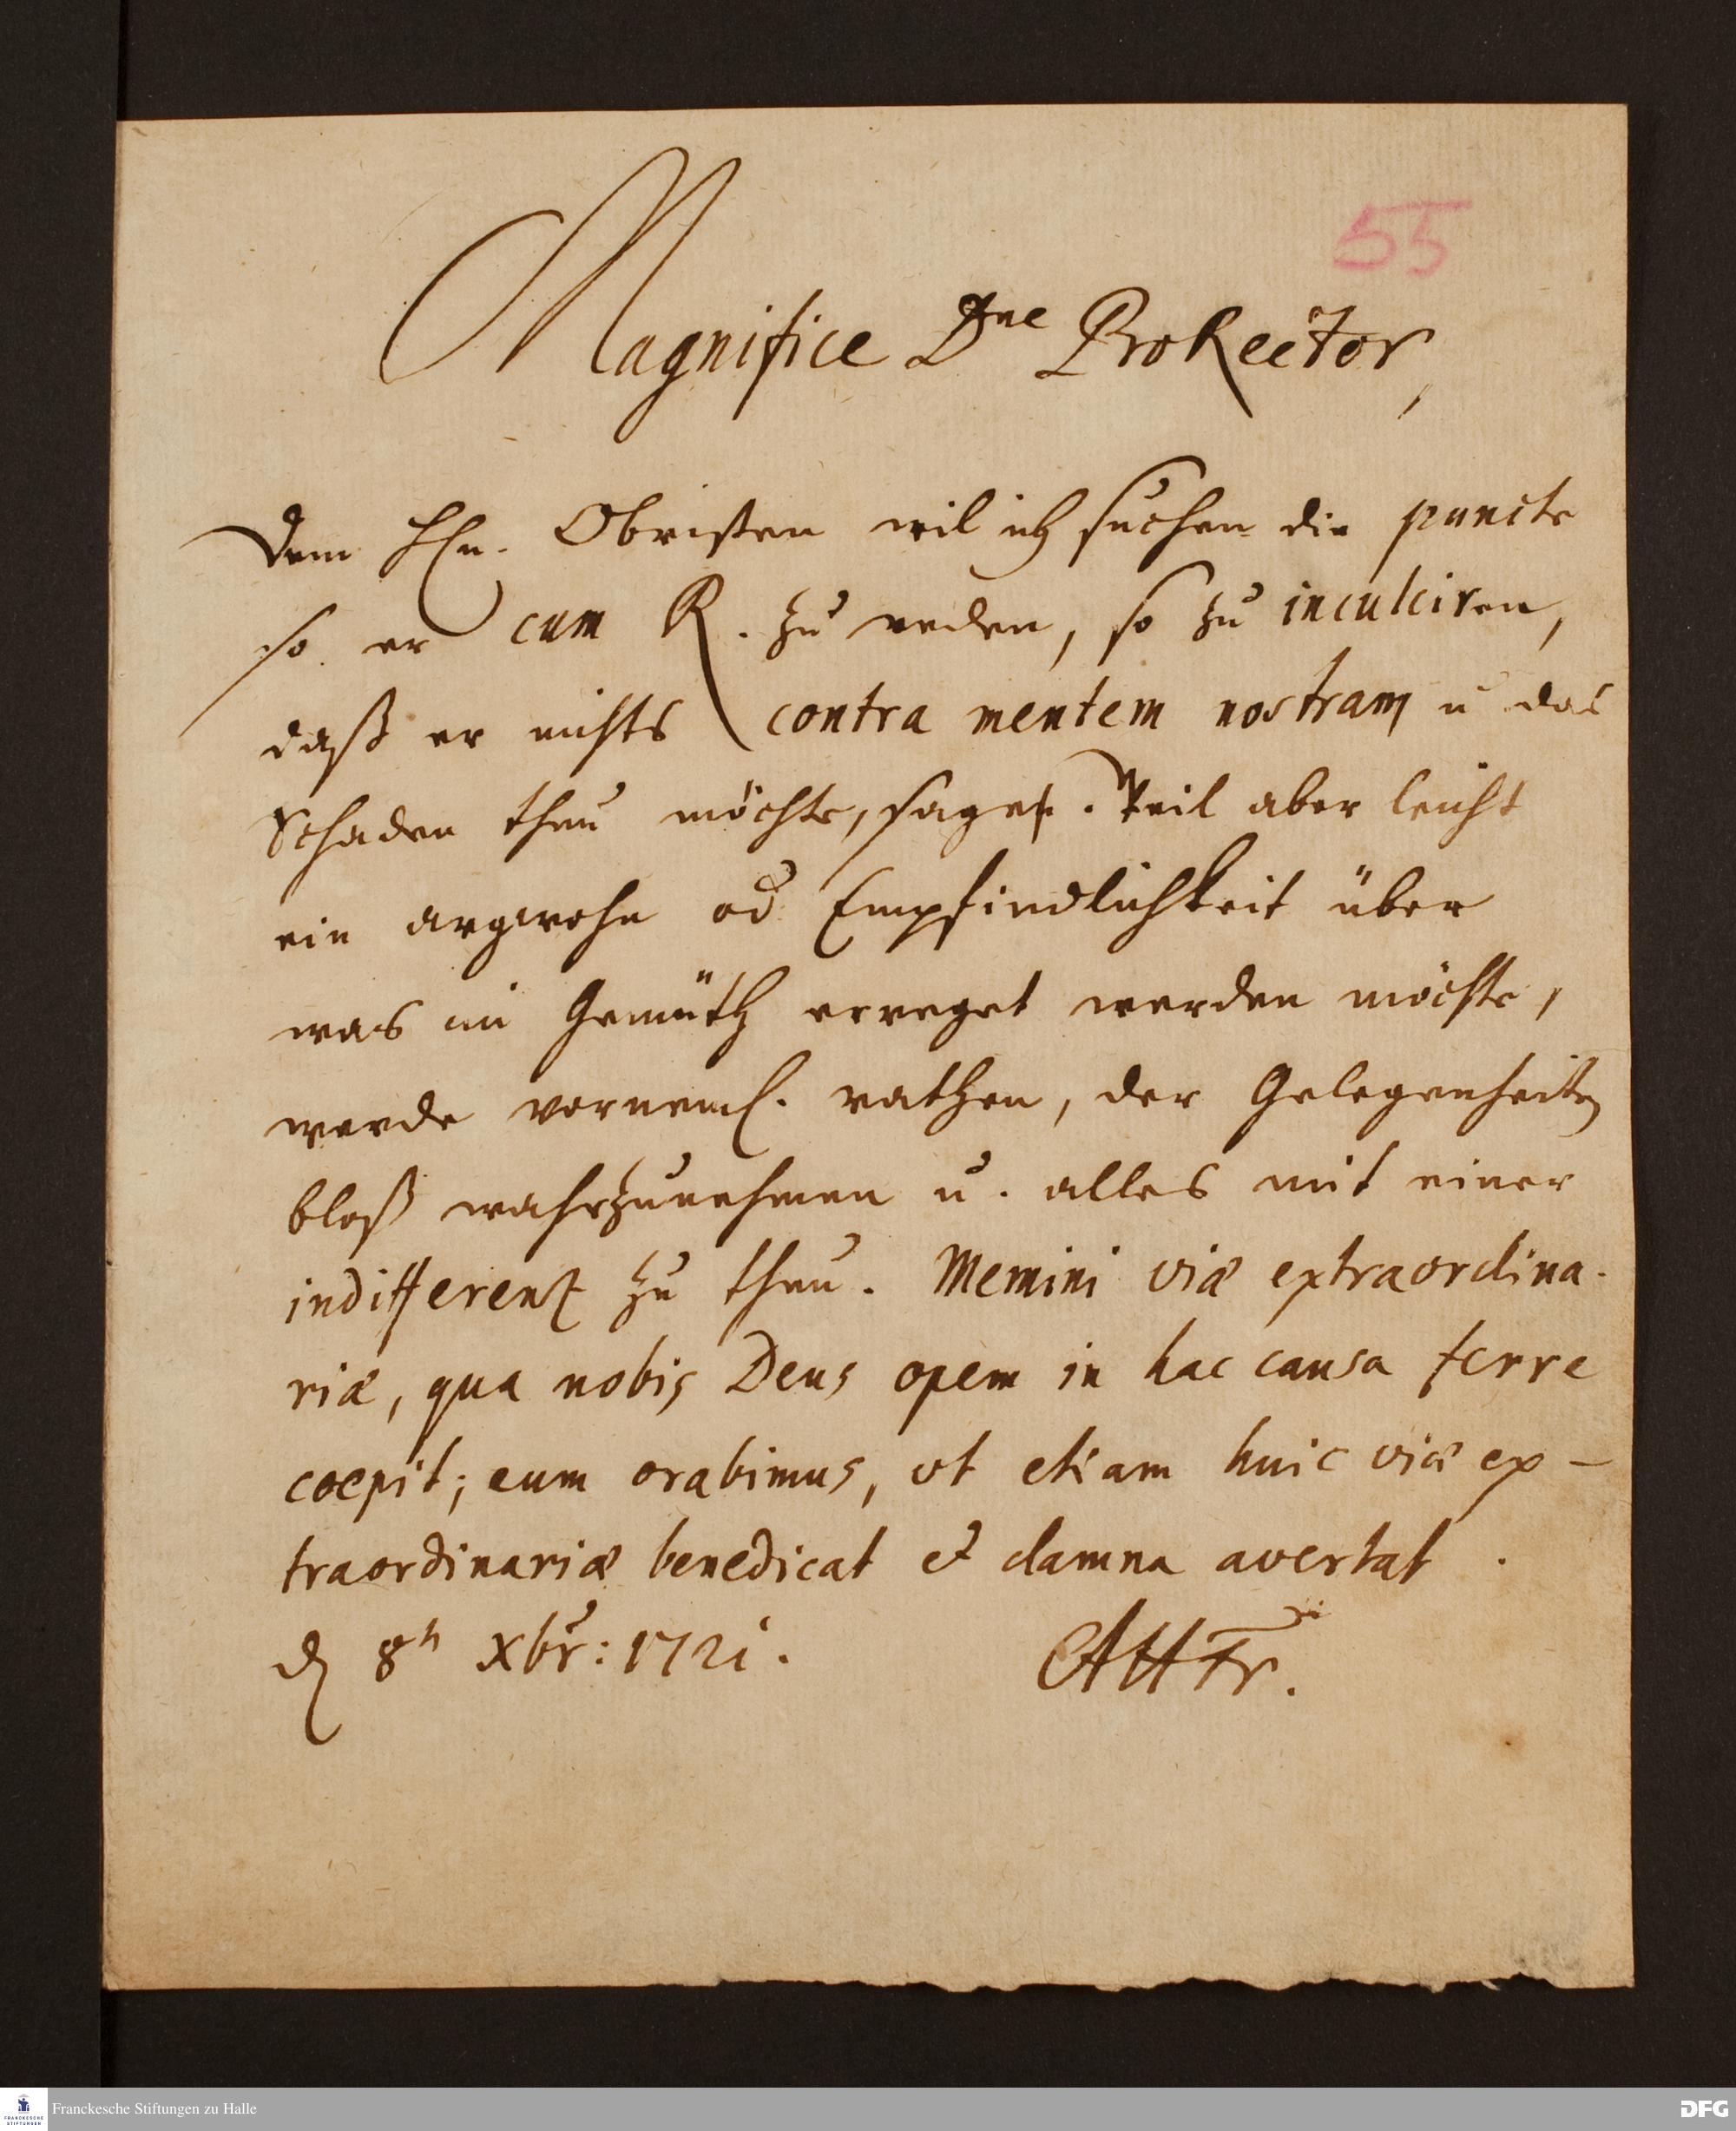 55
Magnifice Dne ProRector,
Dem Hn. Obristen wil ich suchen die puncte
so er cum R. zu reden, so zu inculciren,
daß er nichts contra mentem nostram u das
Schaden thun möchte, sage. Weil aber leicht
ein argwohn od Empfindlichkeit über
was im Gemüth erreget werden möchte,
werde vorneml. rathen, der Gelegenheiten
bloß wahrzunehmen u. alles mit einer
indifferenz zu thun. Memini viæ extraordina-
riæ, qua nobis Deus opem in hac causa ferre
coepit; eum orabimus, ut etiam huic viæ ex-
traordinariæ benedicat et damna avertat.
d 8n Xbr: 1721. AHFr.
FRANCKESCHE STIFTUNGEN
Franckesche Stiftungen zu Halle
DFG